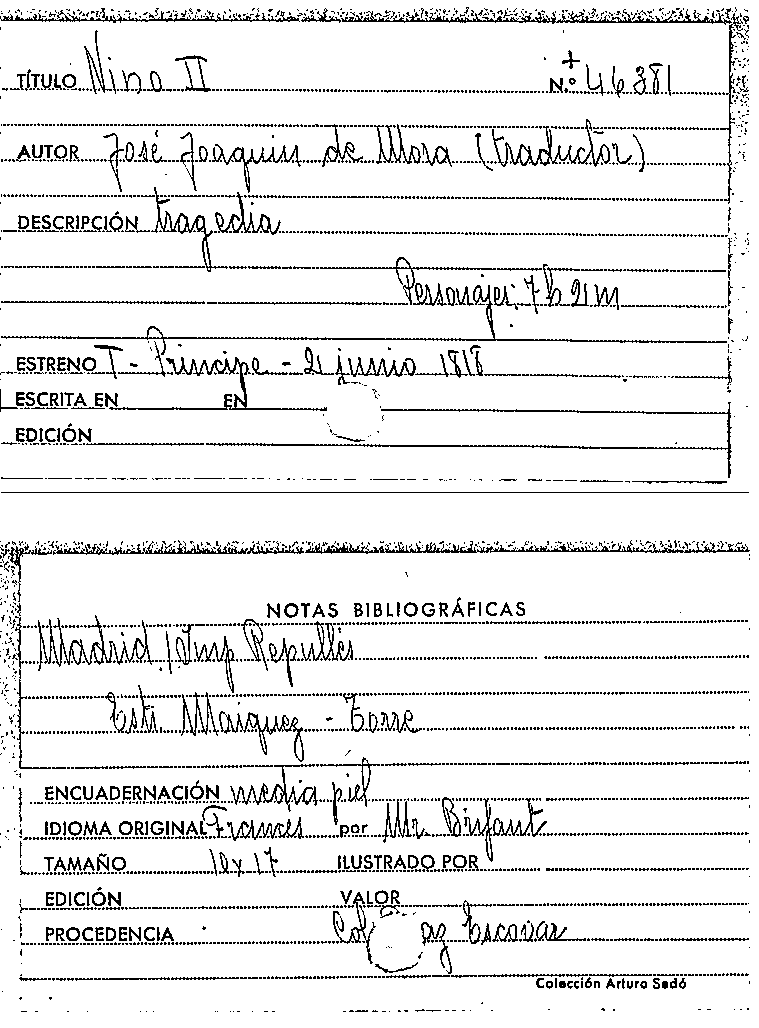 TÍTULO Nino II + N.º 46381
AUTOR José Joaquin de Mora (traductor)
DESCRIPCIÓN tragedia
Personajes: 7 h 2 m
ESTRENO T - Principe - 2 junio 1818
ESCRITA EN EN
EDICIÓN
NOTAS BIBLIOGRÁFICAS
Madrid / Imp Repullés
Estr. Maiquez - Torre
ENCUADERNACIÓN media piel
IDIOMA ORIGINAL Francés por Mr. Brifaut
TAMAÑO 10 x 17 ILUSTRADO POR
EDICIÓN VALOR
PROCEDENCIA Col az Escovar
Colección Arturo Sedó